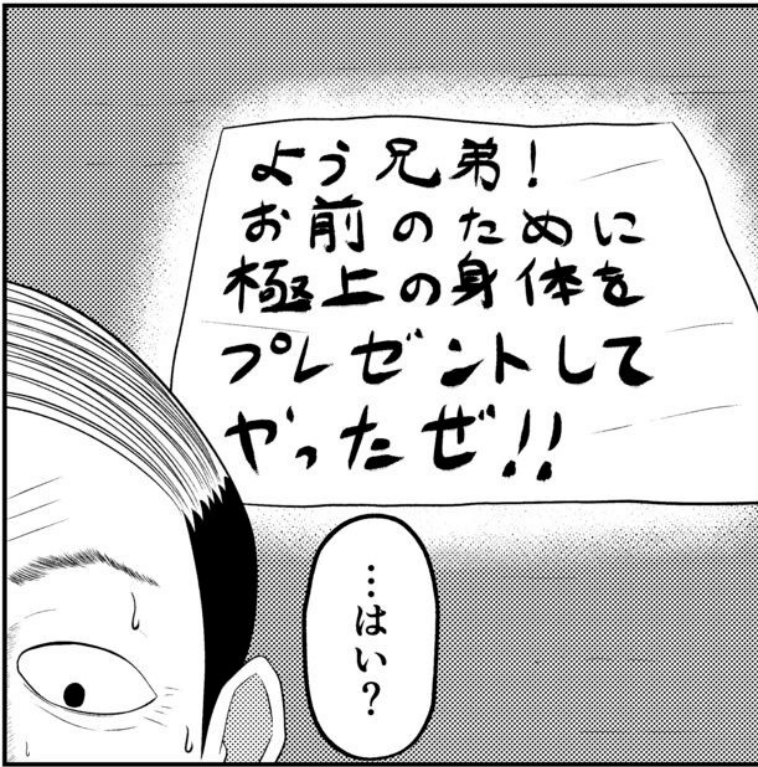 よう兄弟!
お前のために
極上の身体を
プレゼントして
やったぜ!!
…はい?